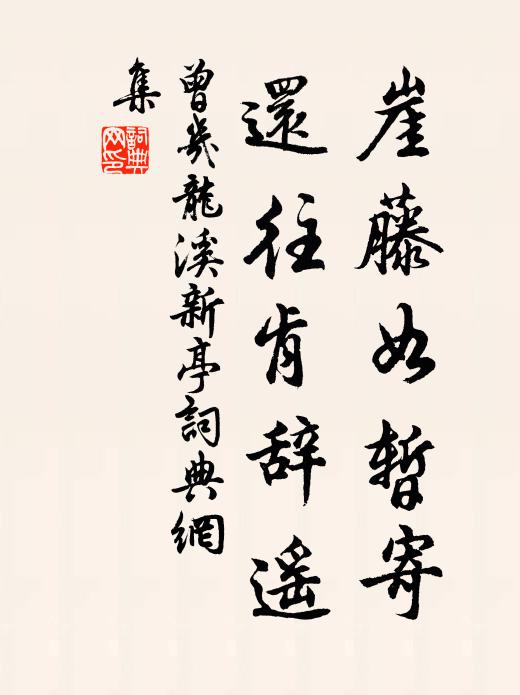 崖藤如暫寄
還往肯辞遥
曾幾龍溪新亭詞典網
集
詞典
网印